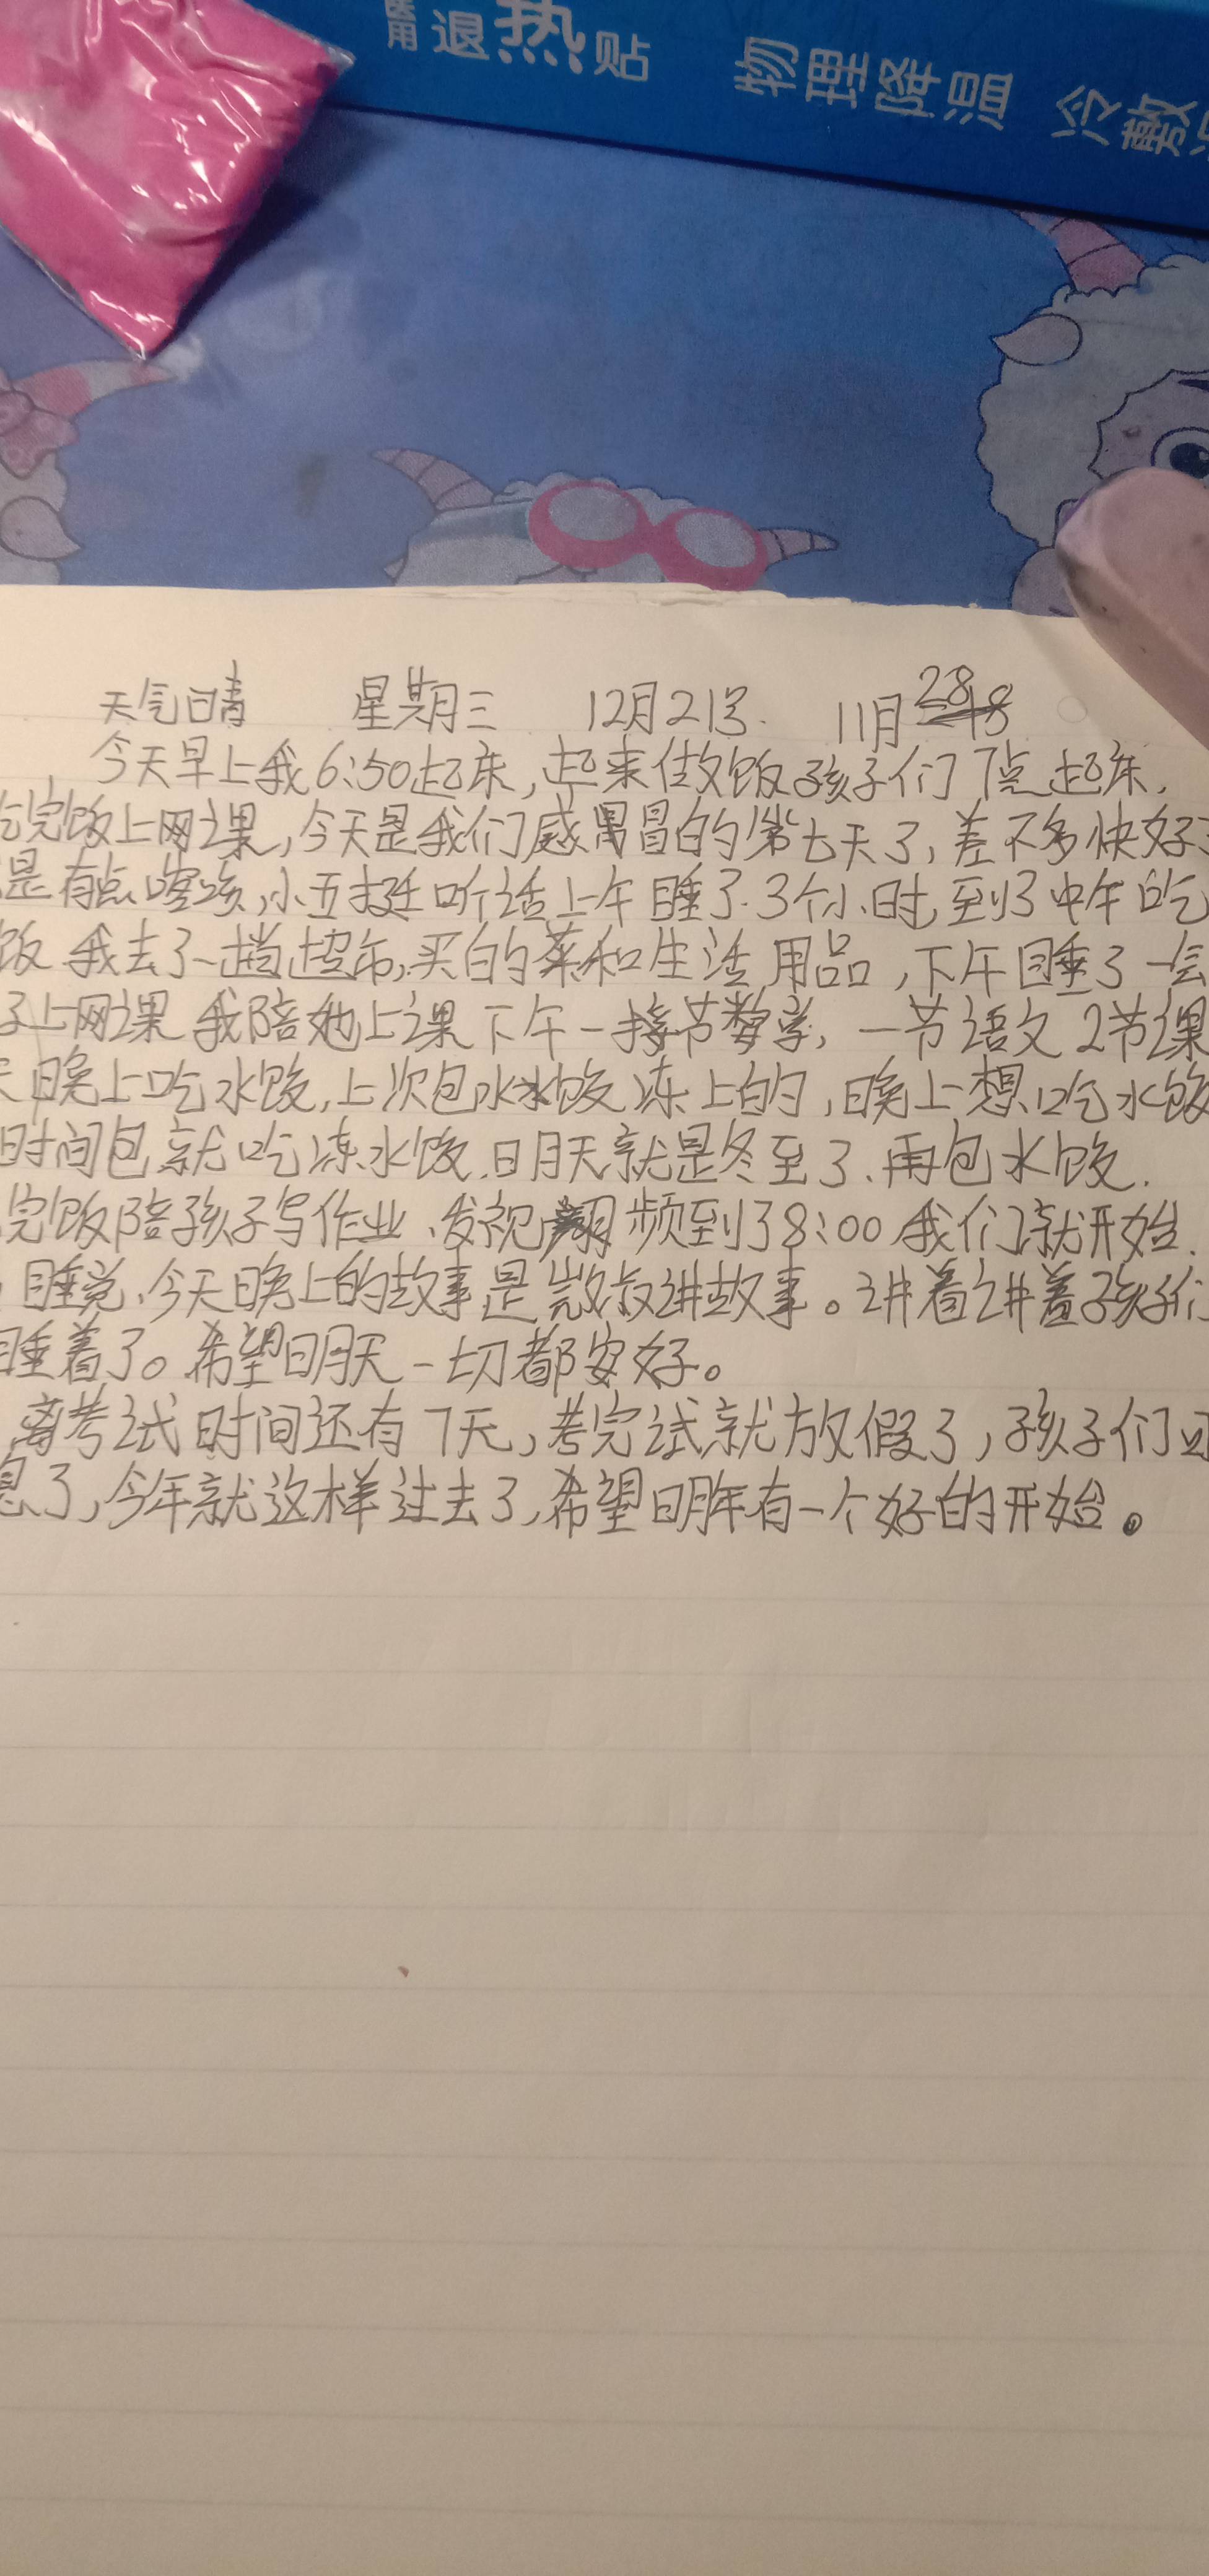 医用退热贴 物理降温 冷敷
天气晴 星期三 12月21号. 11月28
今天早上我6:50起床,起来做饭孩子们7点起床.
吃完饭上网课,今天是我们感冒的第七天了,差不多快好了
是有点咳,小五挺听话上午睡了.3个小时,到了中午吃
饭 我去了一趟超市,买的菜和生活用品,下午睡了一会
子上网课 我陪她上课 下午一节数学,一节语文 2节课
天晚上吃水饺,上次包水饺冻上的,晚上想吃水饺
时间包就吃冻水饺.明天就是冬至了.再包水饺.
完饭陪孩子写作业、发视频到了8:00我们就开始.
睡觉、今天晚上的故事是凯叔讲故事。讲着讲着孩子们
睡着了。希望明天一切都安好。
离考试时间还有7天,考完试就放假了,孩子们可
息了,今年就这样过去了,希望明年有一个好的开始。